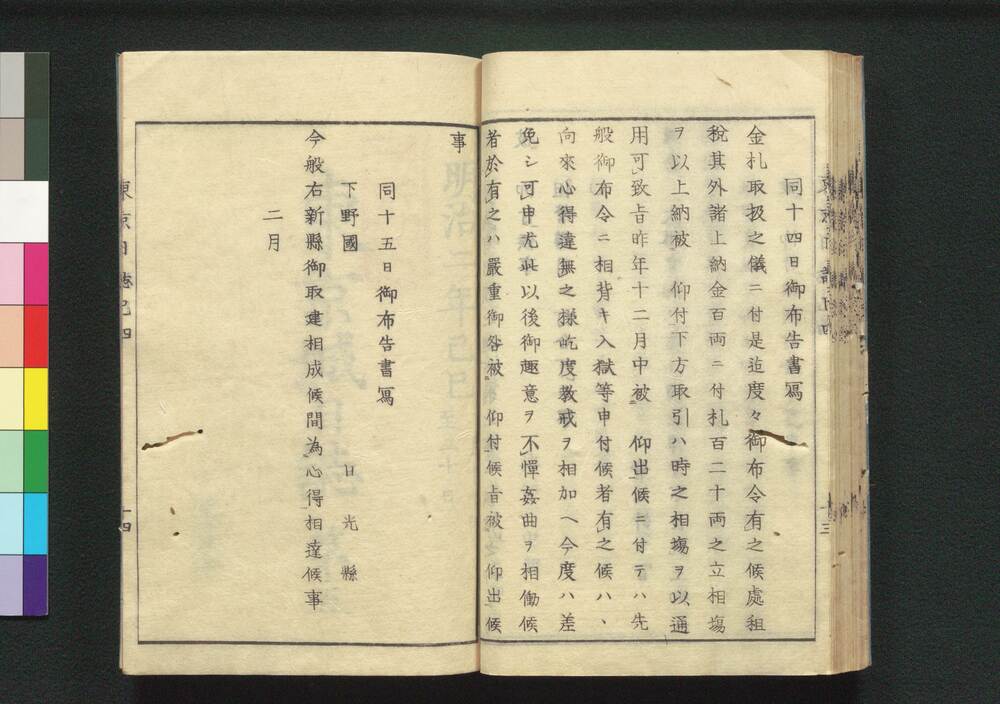 同十四日御布告書寫
金札取扱之儀ニ付是迄度々御布令有之候處租
税其外諸上納金百両ニ付札百二十両之立相塲
ヲ以上納被 仰付下方取引ハ時之相塲ヲ以通
用可致旨昨年十二月中被 仰出候ニ付テハ先
般御布令ニ相背キ入獄等申付候者有之候ハヽ
向來心得違無之様屹度教戒ヲ相加ヘ今度ハ差
免シ可申尤此以後御趣意ヲ不憚姦曲ヲ相働候
者於有之ハ嚴重御咎被 仰付候旨被 仰出候
事
同十五日御布告書寫
下野國 日光縣
今般右新縣御取建相成候間為心得相達候事
二月
東京日誌巳四 十四